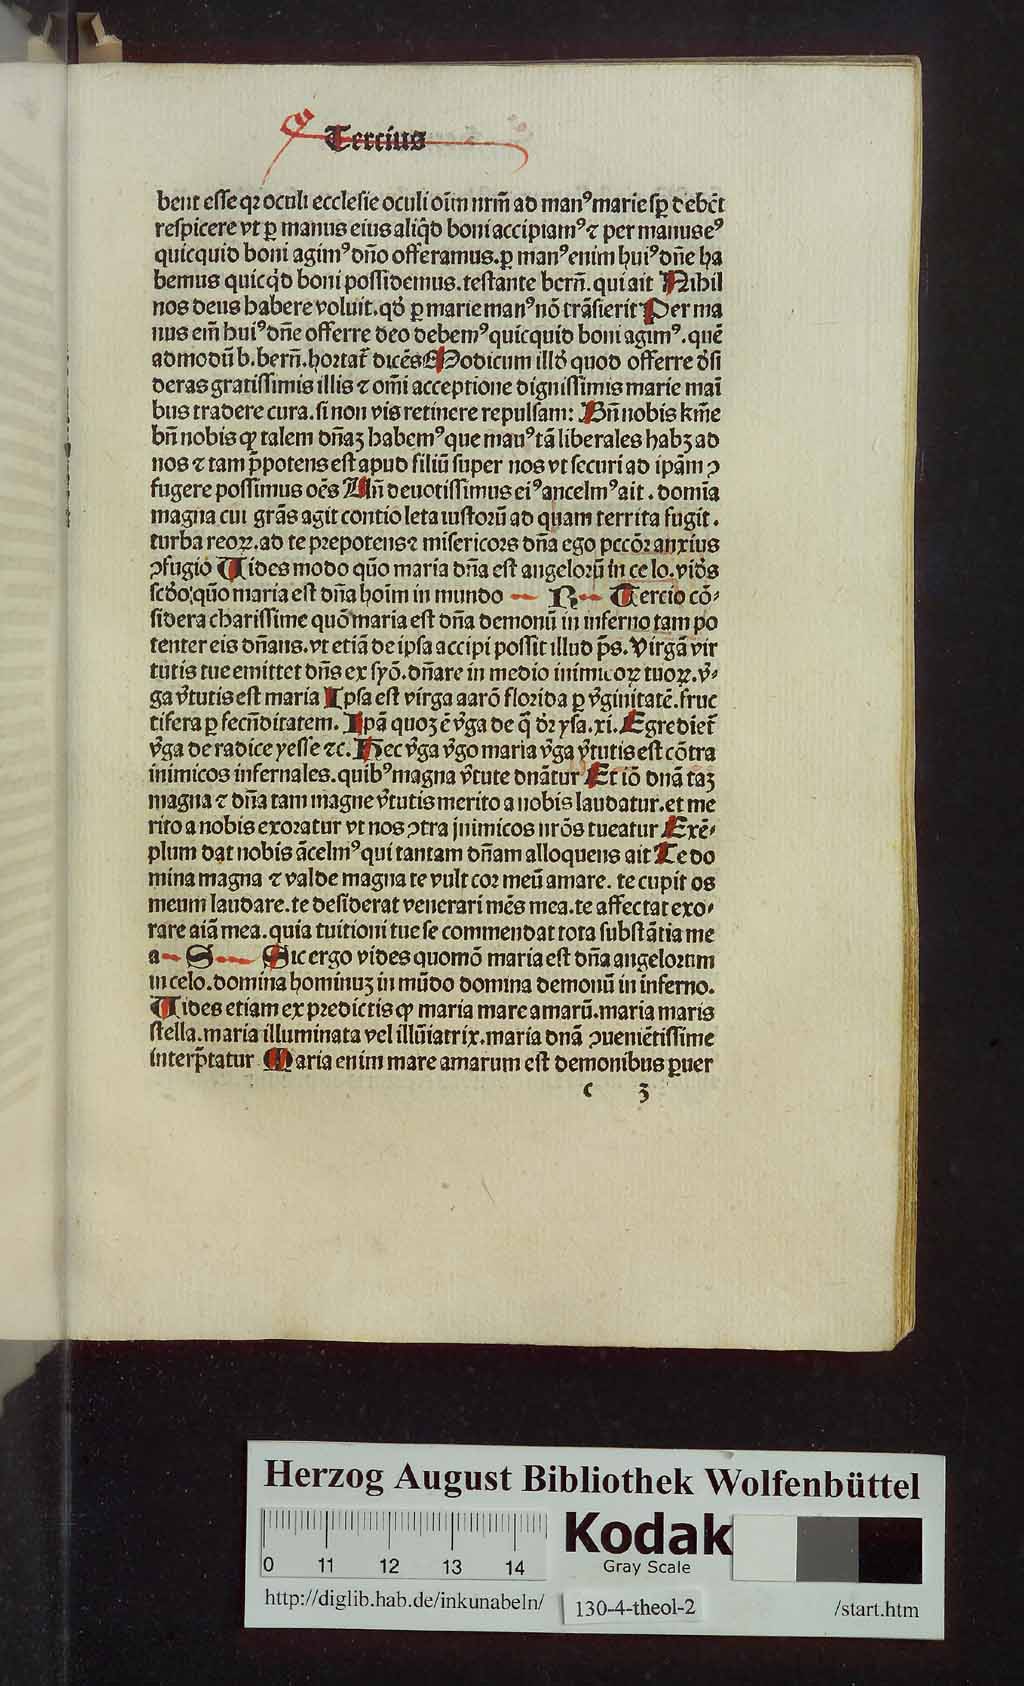 Tercius
bent esse qꝛ oculi ecclesie oculi oīm nrm̄ ad manꝰ marie sꝑ debēt
respicere vt ꝑ manus eius aliq̇d boni accipiamꝰ ⁊ per manus eꝰ
quicquid boni agimꝰ dño offeramus. ꝑ manꝰ enim huiꝰ dñe ha
bemus quicq̇d boni possidemus. testante berñ. qui ait Nihil
nos deus habere voluit. qd̛ ꝑ marie manꝰ nō trāsierit Per ma
nus em̄ huiꝰ dñe offerre deo debemꝰ quicquid boni agimꝰ. quē
admodū b. berñ. hortat᷑ dicēs Modicum illd̛ quod offerre d̛si
deras gratissimis illis ⁊ om̄i acceptione dignissimis marie mani
bus tradere cura. si non vis retinere repulsam: Bñ nobis km̄e
bñ nobis ꝙ talem dñaꝫ habemꝰ que manꝰ tā liberales habꝫ ad
nos ⁊ tam p̄potens est apud filiū super nos vt securi ad ip̄am ꝯ
fugere possimus oēs Uñ deuotissimus eiꝰ ancelmꝰ ait. domīa
magna cui grās agit contio leta iustorū ad quam territa fugit.
turba reoꝝ. ad te prepotens ⁊ misericors dña ego pccōr anxius
ꝯfugio Uides modo quō maria dña est angelorū in celo. vid̛s
scd̛o: quō maria est dña hoīm in mundo R Tercio cō⸗
sidera charissime quō maria est dña demonū in inferno tam po
tenter eis dñans. vt etiā de ipsa accipi possit illud p̄s. Virgā vir
tutis tue emittet dñs ex syō. dñare in medio inimicoꝝ tuoꝝ. v̛⸗
ga v̛tutis est maria Ipsa est virga aarō florida ꝑ v̛ginitatē. fruc
tifera ꝑ fecūditatem. Ip̄a quoqꝫ ē v̛ga de q̄ dr̄ ysa. xi. Egrediet᷑
v̛ga de radice yesse ⁊c. Hec v̛ga v̛go maria v̛ga v̛tutis est cōtra
inimicos infernales. quibꝰ magna v̛tute dnātur Et iō dnā taꝫ
magna ⁊ dña tam magne v̛tutis merito a nobis laudatur. et me
rito a nobis exoratur vt nos ꝯtra jnimicos nrōs tueatur Exē⸗
plum dat nobis ācelmꝰ qui tantam dñam alloquens ait Te do
mina magna ⁊ valde magna te vult cor meū amare. te cupit os
meum laudare. te desiderat venerari mēs mea. te affectat exo⸗
rare aiā mea. quia tuitioni tue se commendat tota substātia me
a S Sic ergo vides quomō maria est dña angelorum
in celo. domina hominuꝫ in mūdo domina demonū in inferno.
Uides etiam ex predictis ꝙ maria mare amarū. maria maris
stella. maria illuminata vel illūiatrix. maria dnā ꝯueniētissime
interp̄tatur Maria enim mare amarum est demonibus ꝑuer
c 3
Herzog August Bibliothek Wolfenbüttel
0 11 12 13 14
Kodak
Gray Scale
http://diglib.hab.de/inkunabeln/ 130-4-theol-2 /start.htm